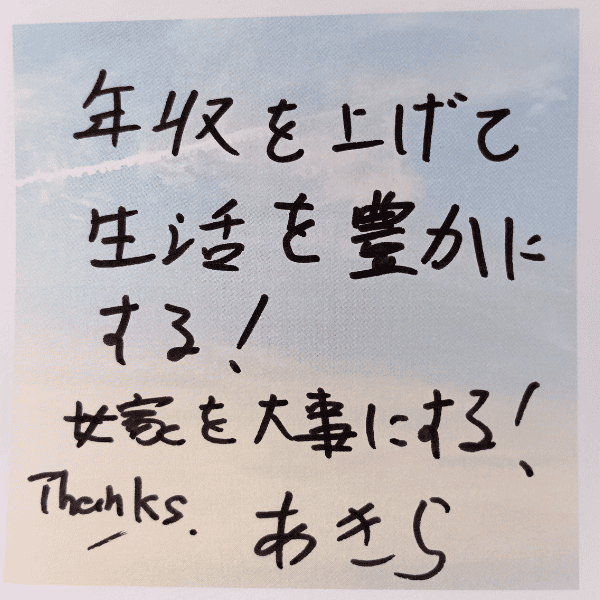 年収を上げて
生活を豊かに
する!
嫁を大事にする!
Thanks. あきら